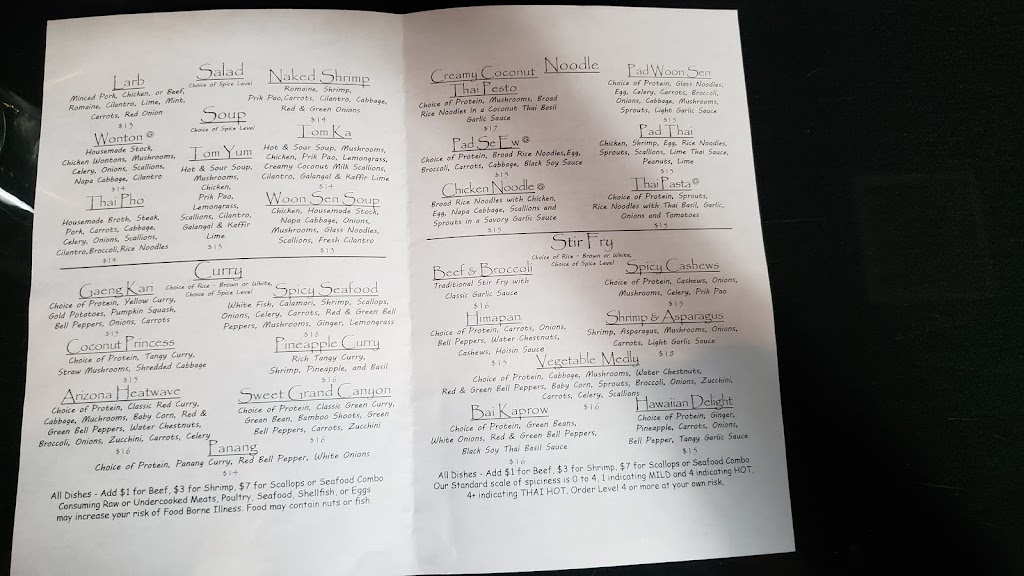 Larb
Minced Pork, Chicken, or Beef,
Romaine, Cilantro, Lime, Mint,
Carrots, Red Onion
$13
Salad
Choice of Spice Level
Naked Shrimp
Romaine, Shrimp,
Prik Pao,Carrots, Cilantro, Cabbage,
Red & Green Onions
$14
Soup
Choice of Spice Level
Wonton
Housemade Stock,
Chicken Wontons, Mushrooms,
Celery, Onions, Scallions,
Napa Cabbage, Cilantro
$14
Tom Yum
Hot & Sour Soup,
Mushrooms,
Chicken,
Prik Pao,
Lemongrass,
Scallions, Cilantro,
Galangal & Kaffir
Lime
$13
Tom Ka
Hot & Sour Soup, Mushrooms,
Chicken, Prik Pao, Lemongrass,
Creamy Coconut Milk Scallions,
Cilantro, Galangal & Kaffir Lime
$14
Thai Pho
Housemade Broth, Steak,
Pork, Carrots, Cabbage,
Celery, Onions, Scallions,
Cilantro,Broccoli,Rice Noodles
$14
Woon Sen Soup
Chicken, Housemade Stock,
Napa Cabbage, Onions,
Mushrooms, Glass Noodles,
Scallions, Fresh Cilantro
$13
Curry
Choice of Rice - Brown or White,
Choice of Spice Level
Gaeng Kari
Choice of Protein, Yellow Curry,
Gold Potatoes, Pumpkin Squash,
Bell Peppers, Onions, Carrots
$15
Spicy Seafood
White Fish, Calamari, Shrimp, Scallops,
Onions, Celery, Carrots, Red & Green Bell
Peppers, Mushrooms, Ginger, Lemongrass
$18
Coconut Princess
Choice of Protein, Tangy Curry,
Straw Mushrooms, Shredded Cabbage
$15
Pineapple Curry
Rich Tangy Curry,
Shrimp, Pineapple, and Basil
$16
Arizona Heatwave
Choice of Protein, Classic Red Curry,
Cabbage, Muchrooms, Baby Corn, Red &
Green Bell Peppers, Water Chestnuts,
Broccoli, Onions, Zucchini, Carrots, Celery
$16
Sweet Grand Canyon
Choice of Protein, Classic Green Curry,
Grean Bean, Bamboo Shoots, Green
Bell Peppers, Carrots, Zucchini
$16
Panang
Choice of Protein, Panang Curry, Red Bell Pepper, White Onions
$14
All Dishes - Add $1 for Beef, $3 for Shrimp, $7 for Scallops or Seafood Combo
Consuming Raw or Undercooked Meats, Poultry, Seafood, Shellfish, or Eggs
may increase your risk of Food Borne Illness. Food may contain nuts or fish.
Noodle
Creamy Coconut
Thai Pesto
Choice of Protein, Mushrooms, Broad
Rice Noodles in a Coconut Thai Basil
Garlic Sauce
$17
Pad Woon Sen
Choice of Protein, Glass Noodles,
Egg, Celery, Carrots, Broccoli,
Onions, Cabbage, Mushrooms,
Sprouts, Light Garlic Sauce
$15
Pad Se Ew
Choice of Protein, Broad Rice Noodles,Egg,
Broccoli, Carrots, Cabbage, Black Soy Sauce
$15
Pad Thai
Chicken, Shrimp, Egg, Rice Noodles,
Sprouts, Scallions, Lime Thai Sauce,
Peanuts, Lime
$15
Chicken Noodle
Broad Rice Noodles with Chicken,
Egg, Napa Cabbage, Scallions and
Sprouts in a Savory Garlic Sauce
$15
Thai Pasta
Choice of Protein, Sprouts,
Rice Noodles with Thai Basil, Garlic,
Onions and Tomatoes
$15
Stir Fry
Choice of Rice - Brown or White,
Choice of Spice Level
Beef & Broccoli
Traditional Stir Fry with
Classic Garlic Sauce
$16
Spicy Cashews
Choice of Protein, Cashews, Onions,
Mushrooms, Celery, Prik Pao
$15
Himapan
Choice of Protein, Carrots, Onions,
Bell Peppers, Water Chestnuts,
Cashews, Hoisin Sauce
$15
Shrimp & Asparagus
Shrimp, Asparagus, Mushrooms, Onions,
Carrots, Light Garlic Sauce
$18
Vegetable Medly
Choice of Protein, Cabbage, Mushrooms, Water Chestnuts,
Red & Green Bell Peppers, Baby Corn, Sprouts, Broccoli, Onions, Zucchini,
Carrots, Celery, Scallions
$16
Bai Kaprow
Choice of Protein, Green Beans,
White Onions, Red & Green Bell Peppers,
Black Soy Thai Basil Sauce
$16
Hawaiian Delight
Choice of Protein, Ginger,
Pineapple, Carrots, Onions,
Bell Pepper, Tangy Garlic Sauce
$15
All Dishes - Add $1 for Beef, $3 for Shrimp, $7 for Scallops or Seafood Combo
Our Standard scale of spiciness is 0 to 4, 1 indicating MILD and 4 indicating HOT,
4+ indicating THAI HOT. Order Level 4 or more at your own risk.